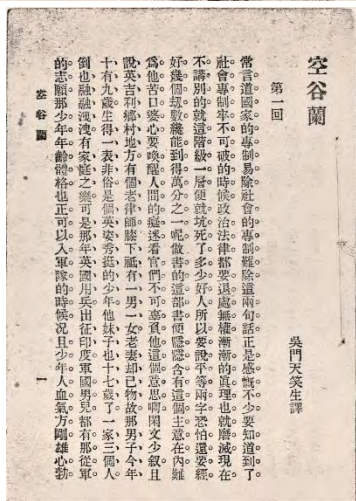 空谷蘭
吳門天笑生譯
第一回
常言道國家的專制易除社會的專制難除這兩句話正是感慨不少要知道到了
社會專制牢不可破的時候政治法律都要退處無權漸漸的眞理也就磨滅現在
不講別的就這階級一層便就坑死了多少好人所以要說平等兩字恐怕還要經
好幾個刼數纔能到得萬分之一呢做書的這部書便隱隱含有這個主意在內難
爲他苦口婆心要喚醒人間的癡迷看官們不可辜負他這個意思啊閑文少叙且
說英吉利鄉村地方有個老律師膝下祗有一男一女老妻却已物故那男子今年
十有九歲生得一表非俗是個英姿秀挺的少年他妹子也十七歲了一家三個人
倒也融融洩洩有家庭之樂可是那年英國用兵出征印度軍國男兒都有那從軍
的志願那少年年齡體格也正可以入軍隊的時候况且少年人血氣方剛雄心勃
空谷蘭
一